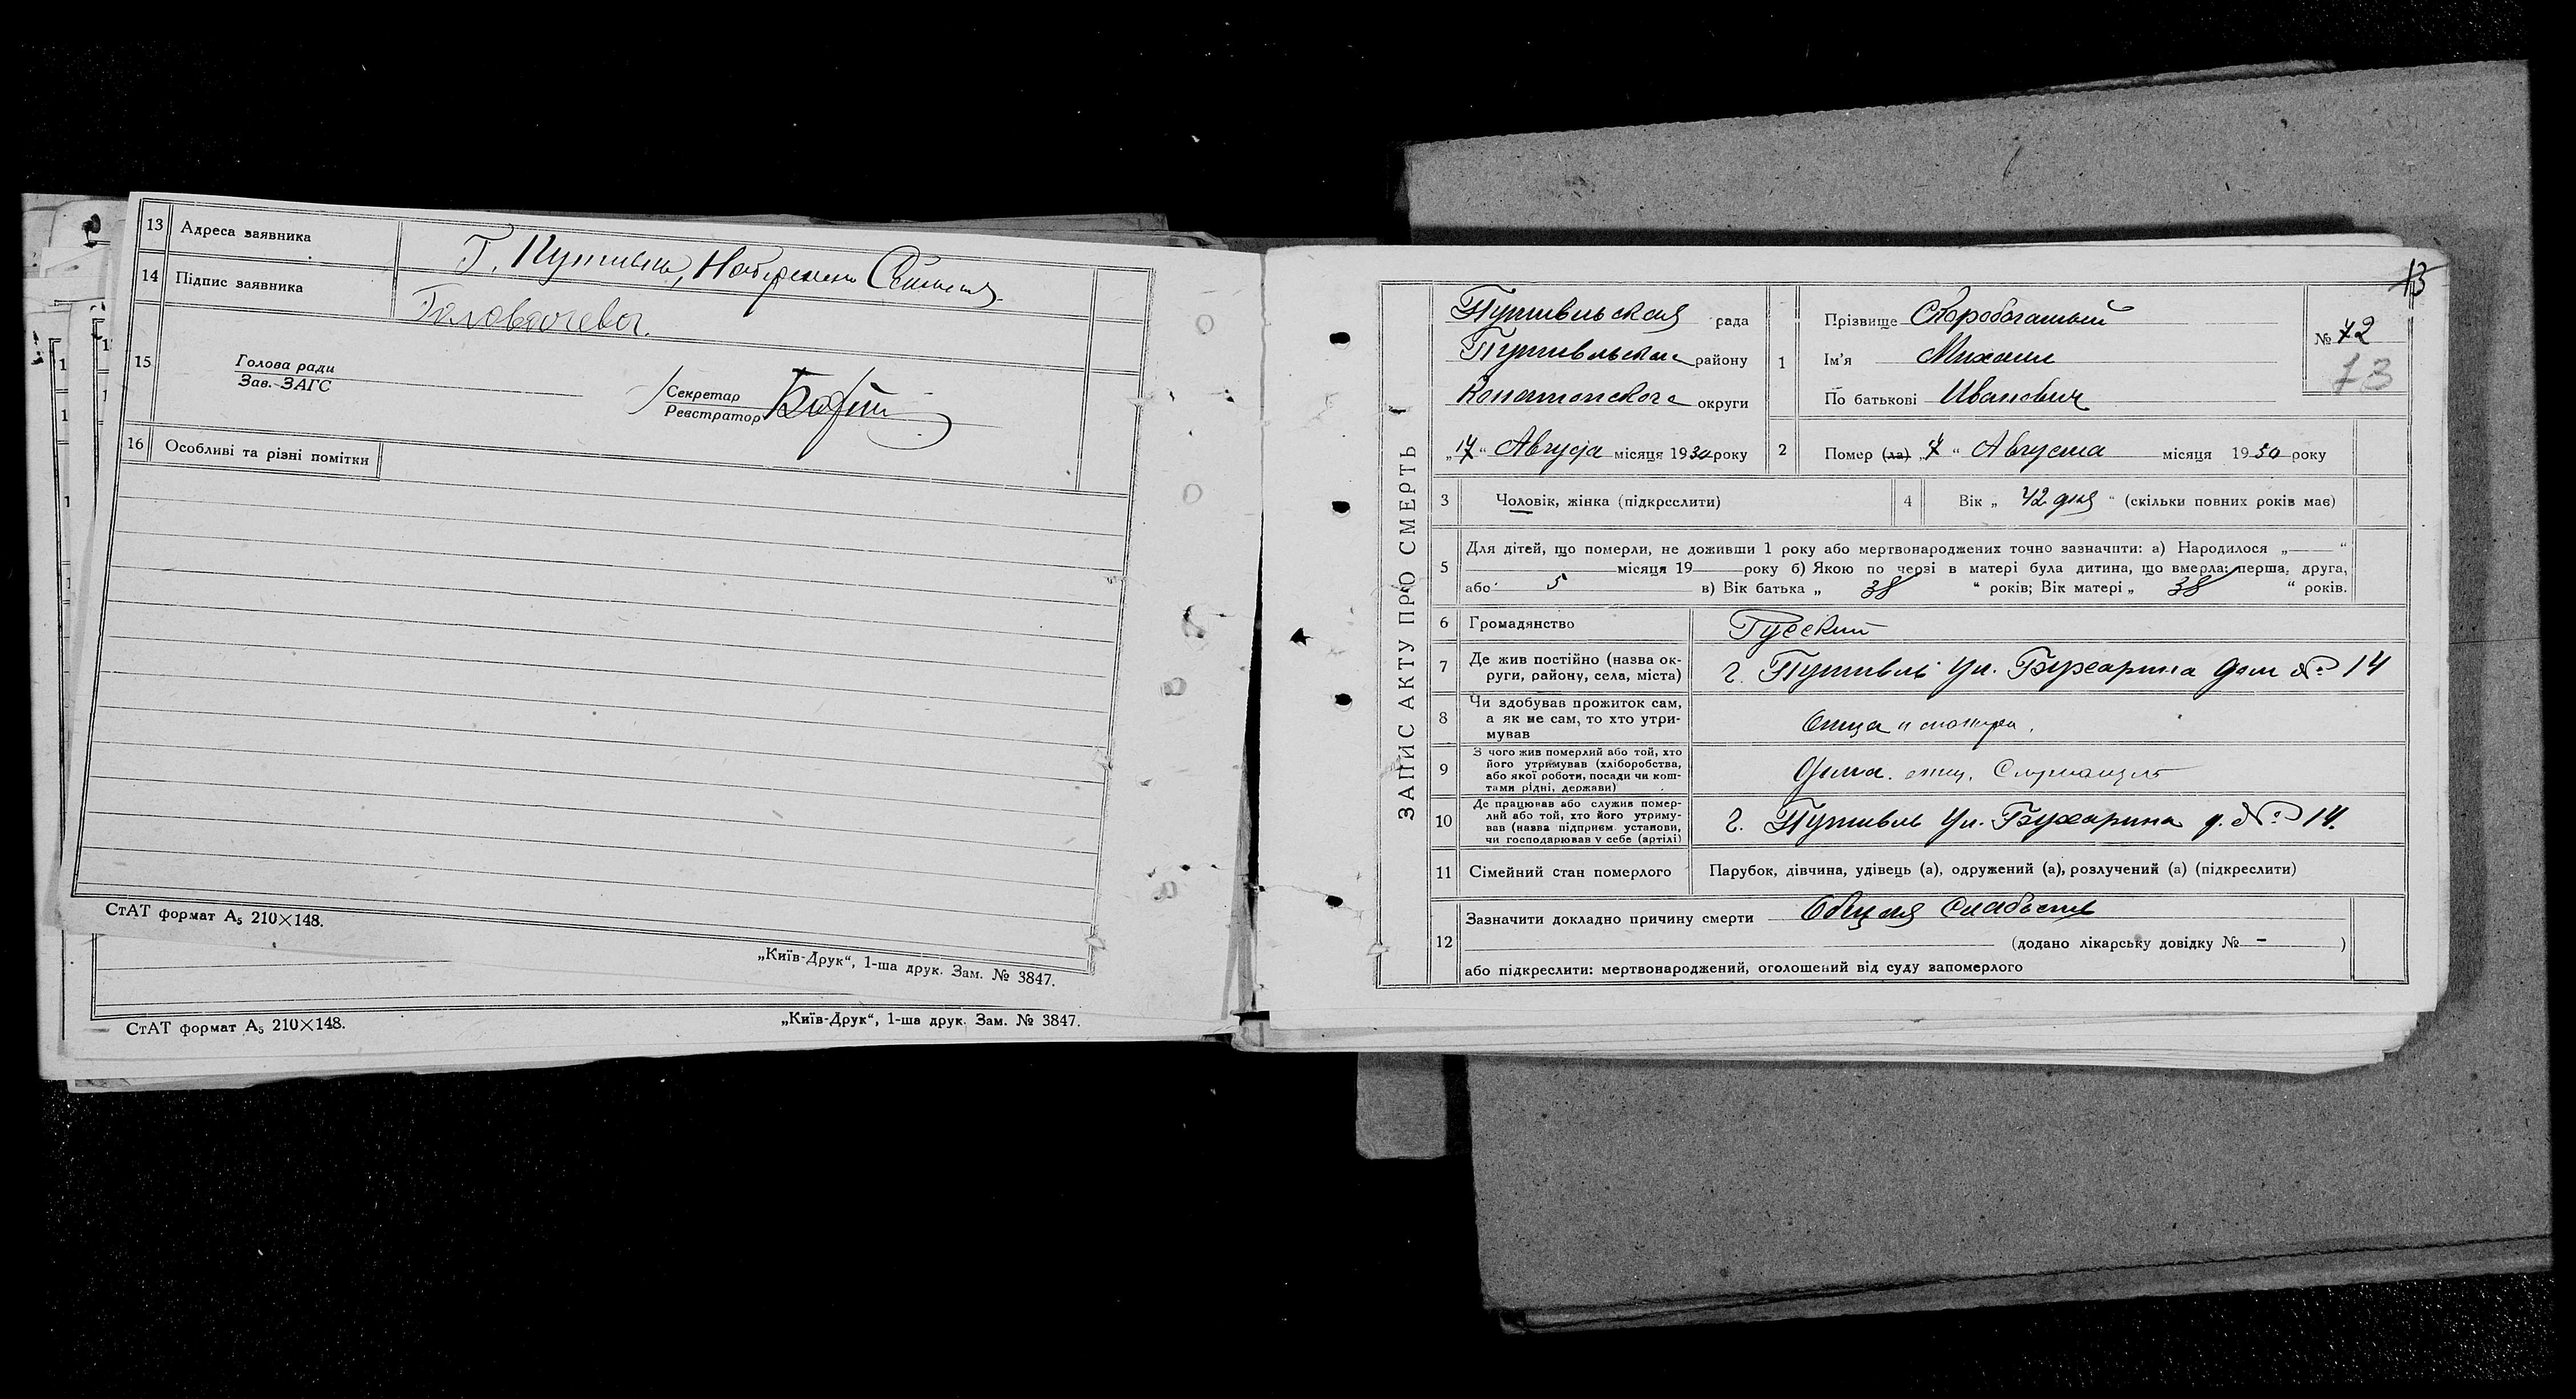 13 Адреса заявника Г. Путивль,
14 Підпис заявника Головачева.
15 Голова ради
Зав. ЗАГС
Секретар
Реєстратор
16 Особливі та різні помітки
СтАТ формат А₅ 210×148.
„Київ-Друк“, 1-ша друк. Зам. № 3847.
СтАТ формат А₅ 210×148.
„Київ-Друк“, 1-ша друк. Зам. № 3847.
13
ЗАПИС АКТУ ПРО СМЕРТЬ
Путивльская рада
Путивльского району
Конотопского округи
„17“ Августа місяця 1930 року
1 Прізвище Старобогатый
Ім'я Михаил
По батькові Иванович
№ 72
73
2 Помер (ла) „7“ Августа місяця 1930 року
3 Чоловік, жінка (підкреслити)
4 Вік „42 дня“ (скільки повних років має)
5 Для дітей, що померли, не доживши 1 року або мертвонароджених точно зазначити: а) Народилося „ “
місяця 19 року б) Якою по черзі в матері була дитина, що вмерла: перша, друга,
або 5 в) Вік батька „ 38 “ років; Вік матері „ 38 “ років.
6 Громадянство Русский
7 Де жив постійно (назва ок-
руги, району, села, міста) г. Путивль ул. Бухарина дом № 14
8 Чи здобував прожиток сам,
а як не сам, то хто утри-
мував Отца и матери.
9 З чого жив померлий або той, хто
його утримував (хліборобства,
або якої роботи, посади чи кош-
тами рідні, держави)
10 Де працював або служив помер-
лий або той, хто його утриму-
вав (назва підприєм. установи,
чи господарював у себе (артілі) г. Путивль ул. Бухарина д. № 14.
11 Сімейний стан померлого Парубок, дівчина, удівець (а), одружений (а), розлучений (а) (підкреслити)
12 Зазначити докладно причину смерти Общая Слабость
(додано лікарську довідку № - )
або підкреслити: мертвонароджений, оголошений від суду запомерлого